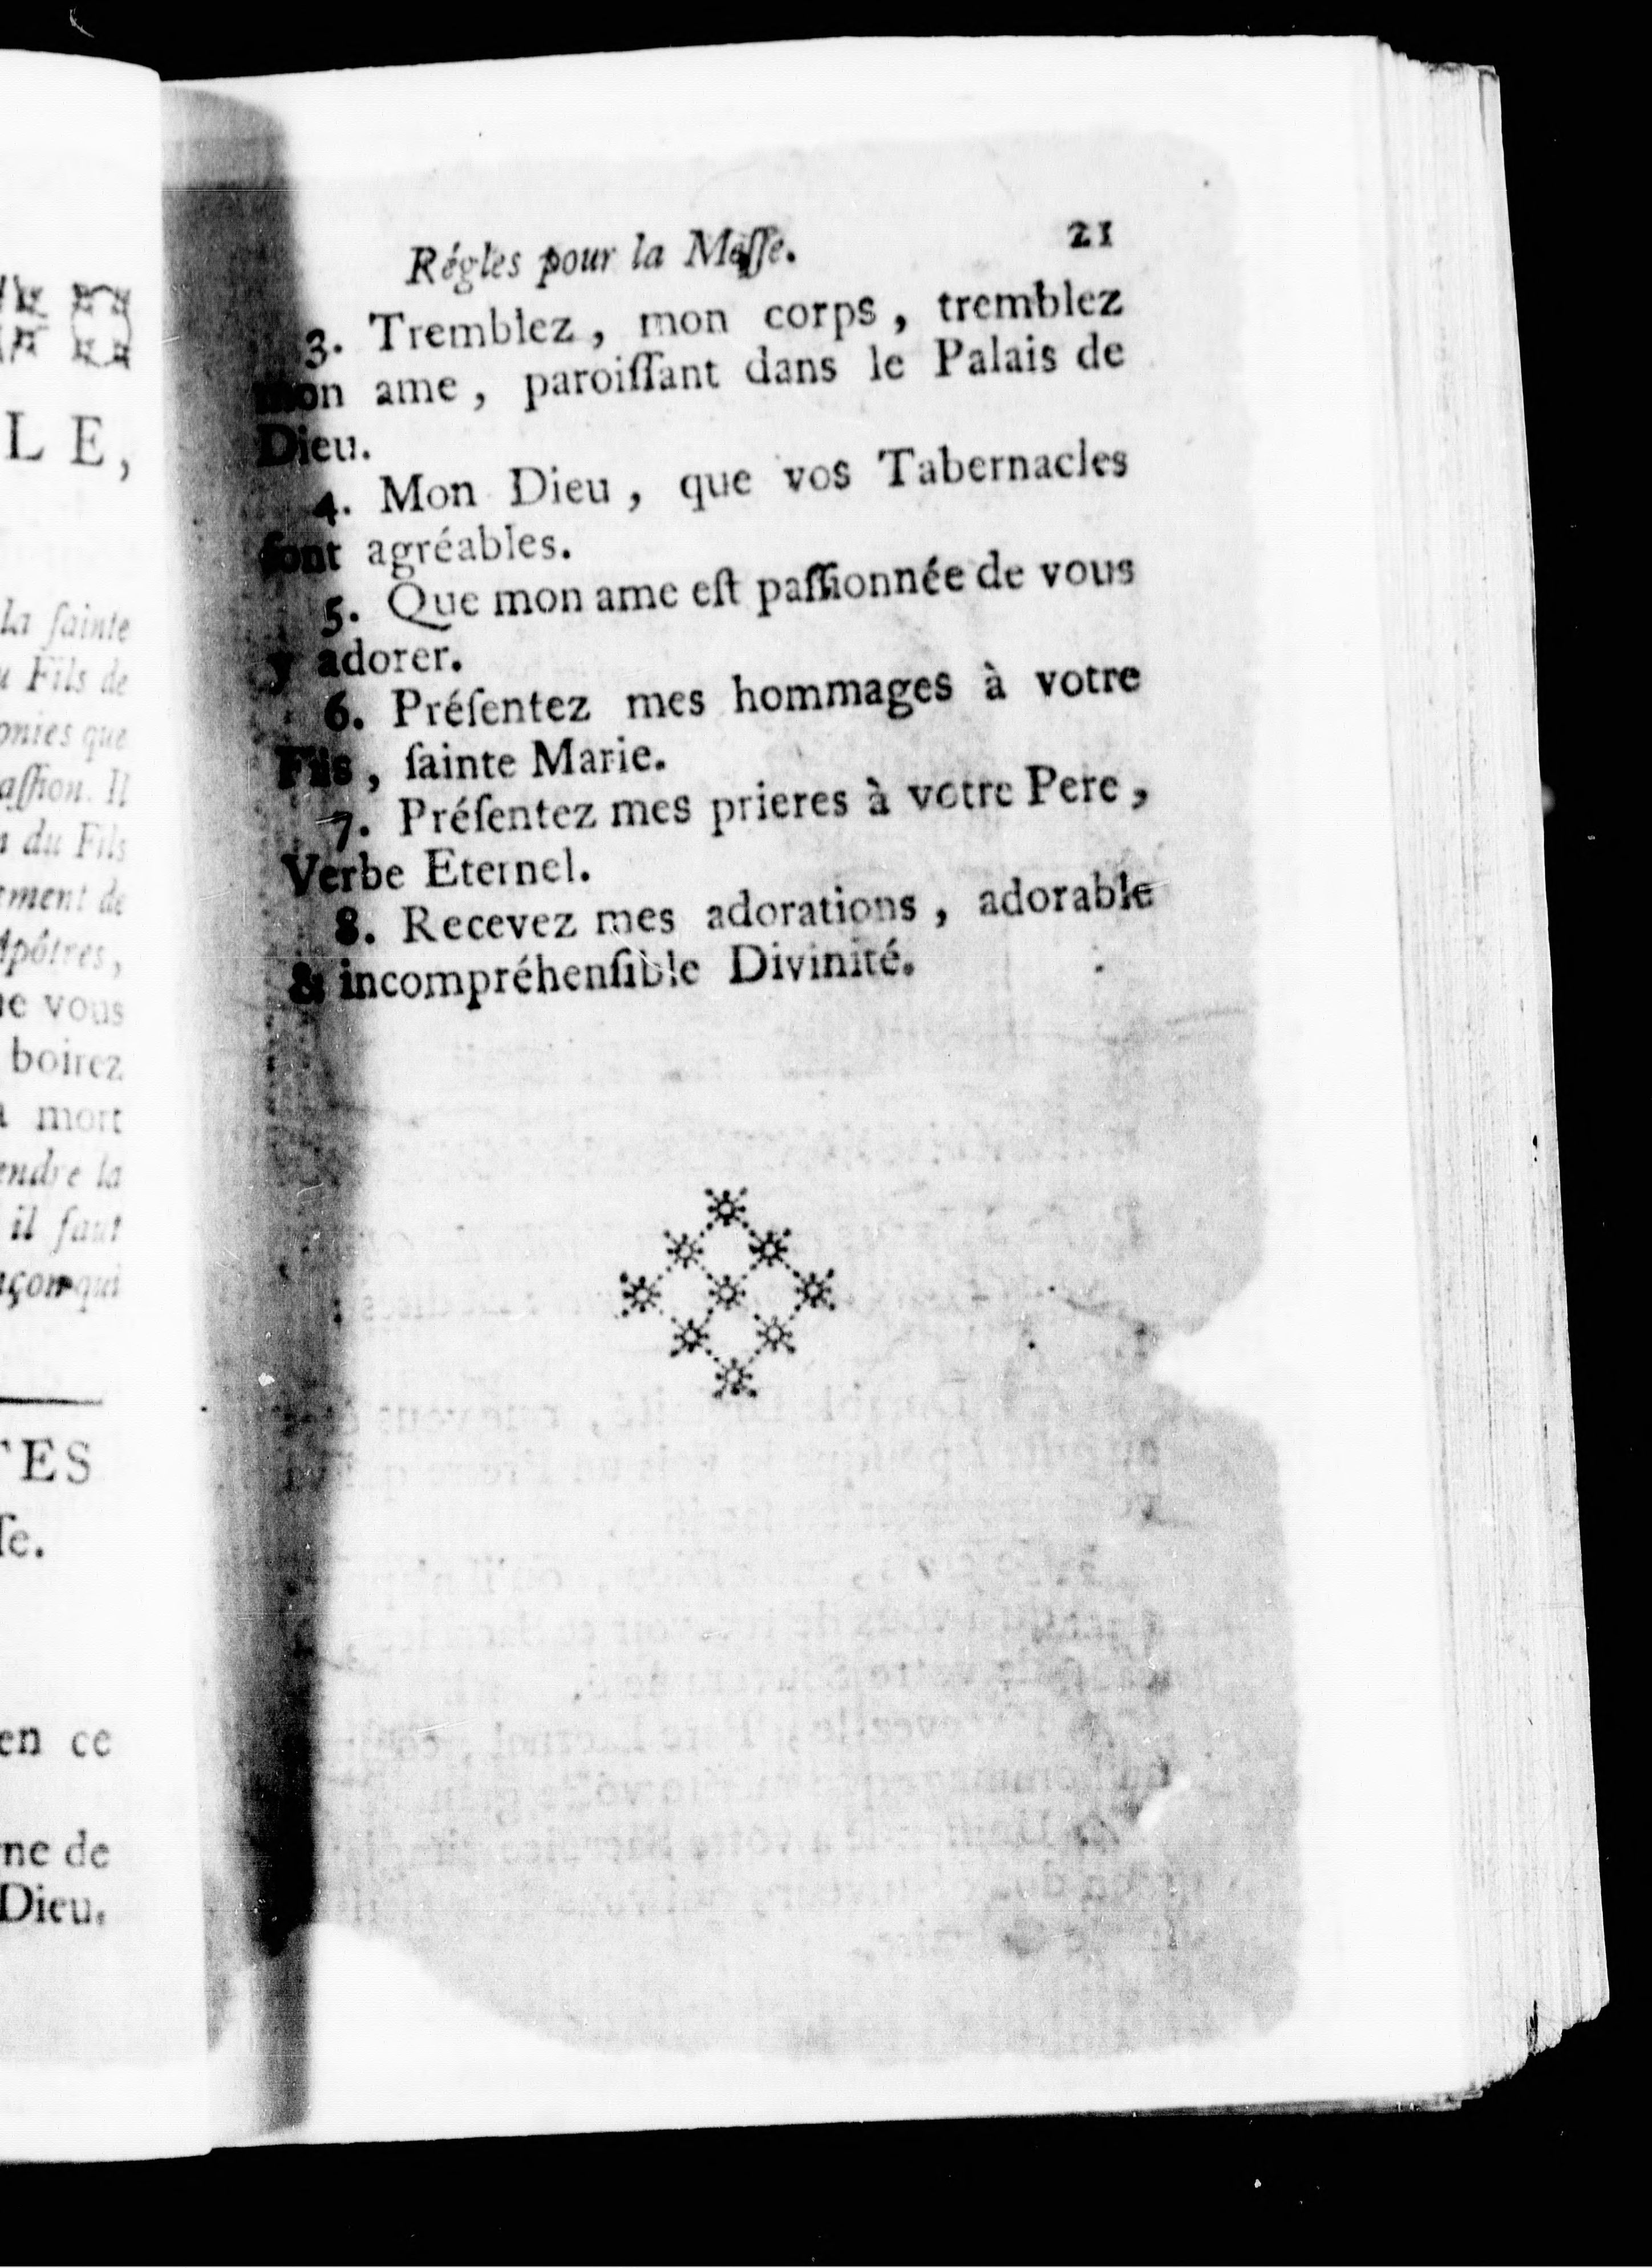 LE,
la ſainte
Fils de
que
Il
du Fils
de
vous
boirez
mort
la
il faut
qui
ſe.
en ce
de
Dieu.
Régles pour la Meſſe. 21
3. Tremblez, mon corps, tremblez
mon ame, paroiſſant dans le Palais de
Dieu.
4. Mon Dieu, que vos Tabernacles
ſont agréables.
5. Que mon ame eſt paſſionnée de vous
y adorer.
6. Préſentez mes hommages à votre
Fils, ſainte Marie.
7. Préſentez mes prieres à votre Pere,
Verbe Eternel.
8. Recevez mes adorations, adorable
& incompréhenſible Divinité.